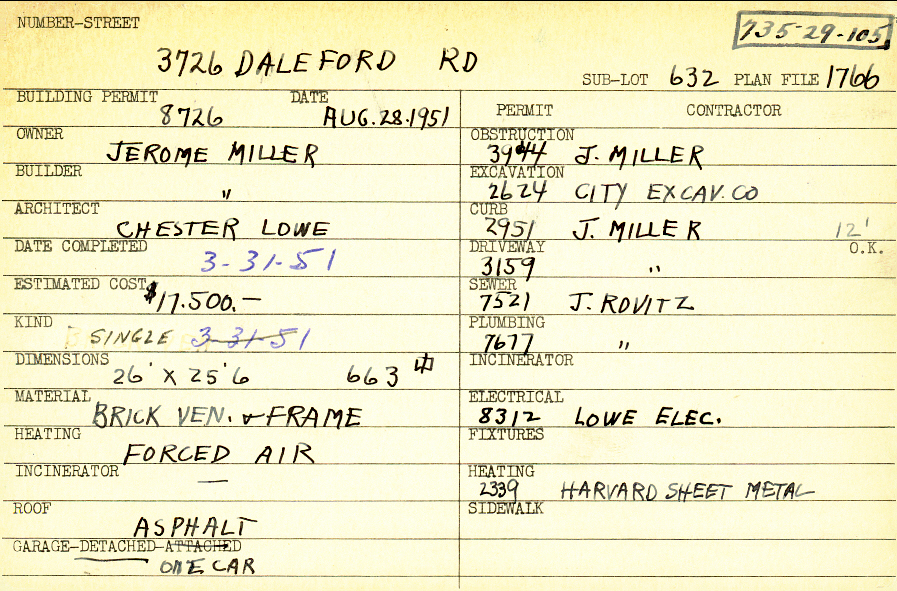 NUMBER-STREET
735-29-105
3726 DALEFORD RD
SUB-LOT 632 PLAN FILE 1766
BUILDING PERMIT DATE
8726 AUG.28.1951
PERMIT CONTRACTOR
OWNER
JEROME MILLER
OBSTRUCTION
3944 J. MILLER
BUILDER
"
EXCAVATION
2624 CITY EXCAV. CO
ARCHITECT
CHESTER LOWE
CURB
2951 J. MILLER 12'
DATE COMPLETED
3-31-51
DRIVEWAY O.K.
3159 "
ESTIMATED COST
$17.500.—
SEWER
7521 J. ROVITZ
KIND
SINGLE 3-31-51
PLUMBING
7677 "
DIMENSIONS
26' X 25'6 663
INCINERATOR
MATERIAL
BRICK VEN. & FRAME
ELECTRICAL
8312 LOWE ELEC.
HEATING
FORCED AIR
FIXTURES
INCINERATOR
—
HEATING
2339 HARVARD SHEET METAL
ROOF
ASPHALT
SIDEWALK
GARAGE-DETACHED-ATTACHED
ONE CAR